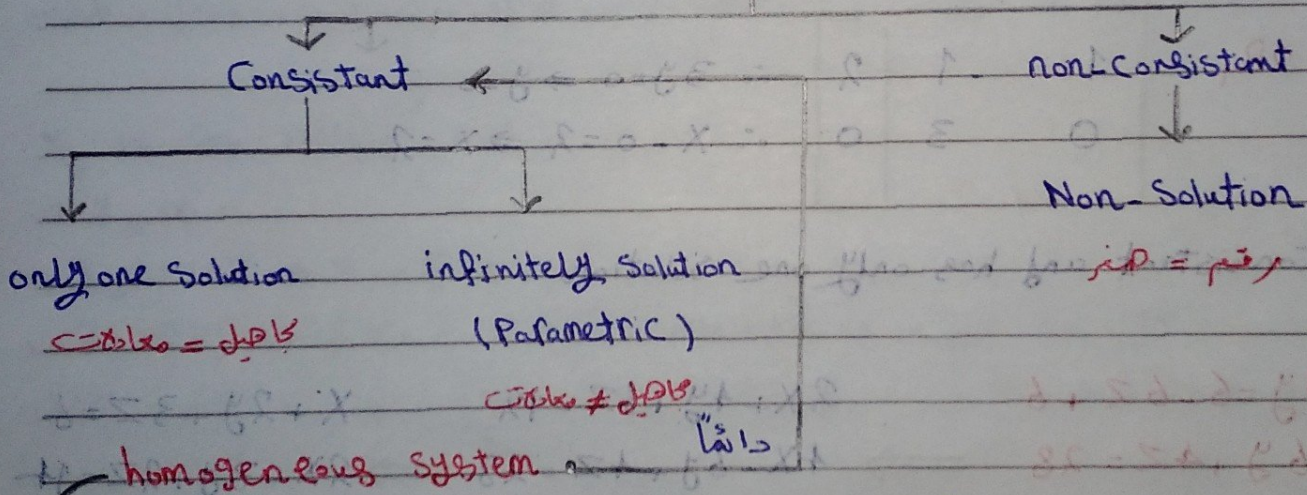 Consistant
non-Consistant
Non-Solution
only one Solution
infinitely Solution
رقم = صفر
(Parametric)
دائماً
homogeneous system